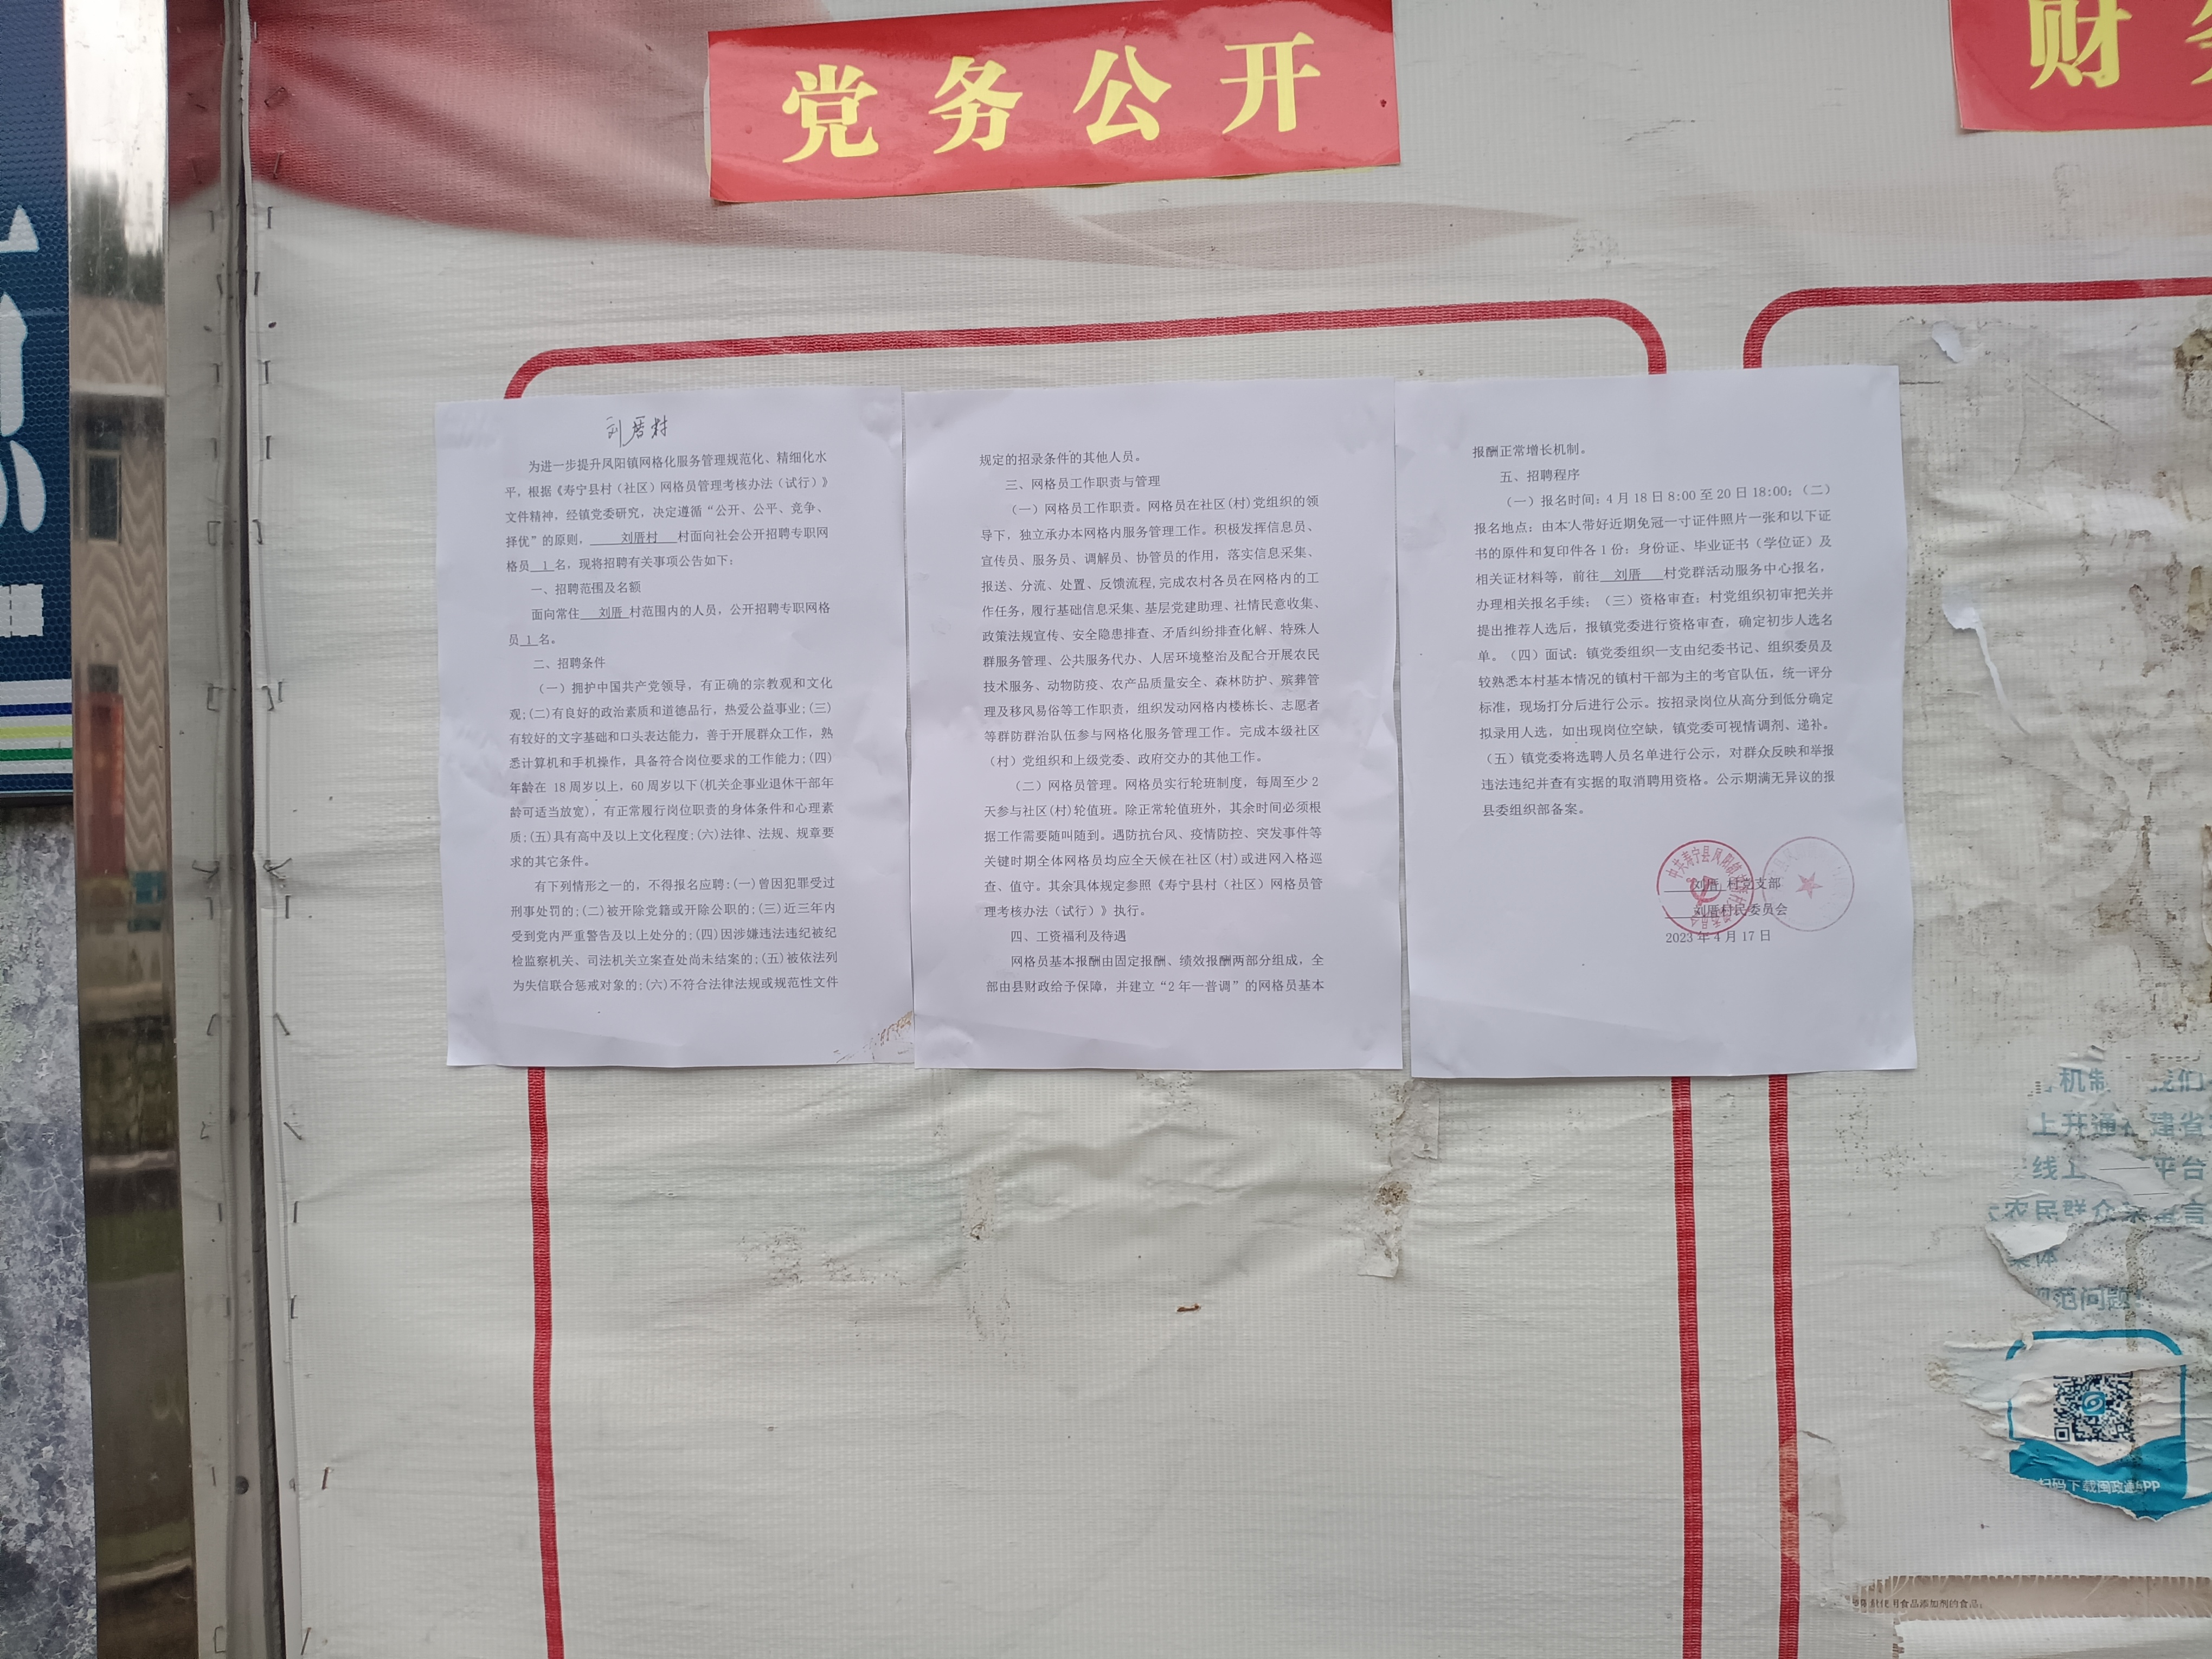 党务公开
财
刘厝村
为进一步提升凤阳镇网格化服务管理规范化、精细化水
平，根据《寿宁县村（社区）网格员管理考核办法（试行）》
文件精神，经镇党委研究，决定遵循“公开、公平、竞争、
择优”的原则，刘厝村村面向社会公开招聘专职网
格员1名，现将招聘有关事项公告如下：
一、招聘范围及名额
面向常住刘厝村范围内的人员，公开招聘专职网格
员1名。
二、招聘条件
（一）拥护中国共产党领导，有正确的宗教观和文化
观;(二)有良好的政治素质和道德品行，热爱公益事业;(三)
有较好的文字基础和口头表达能力，善于开展群众工作，熟
悉计算机和手机操作，具备符合岗位要求的工作能力;(四)
年龄在 18 周岁以上，60 周岁以下(机关企事业退休干部年
龄可适当放宽)，有正常履行岗位职责的身体条件和心理素
质;(五)具有高中及以上文化程度;(六)法律、法规、规章要
求的其它条件。
有下列情形之一的，不得报名应聘:(一)曾因犯罪受过
刑事处罚的;(二)被开除党籍或开除公职的;(三)近三年内
受到党内严重警告及以上处分的;(四)因涉嫌违法违纪被纪
检监察机关、司法机关立案查处尚未结案的;(五)被依法列
为失信联合惩戒对象的;(六)不符合法律法规或规范性文件
规定的招录条件的其他人员。
三、网格员工作职责与管理
（一）网格员工作职责。网格员在社区(村)党组织的领
导下，独立承办本网格内服务管理工作。积极发挥信息员、
宣传员、服务员、调解员、协管员的作用，落实信息采集、
报送、分流、处置、反馈流程,完成农村各员在网格内的工
作任务，履行基础信息采集、基层党建助理、社情民意收集、
政策法规宣传、安全隐患排查、矛盾纠纷排查化解、特殊人
群服务管理、公共服务代办、人居环境整治及配合开展农民
技术服务、动物防疫、农产品质量安全、森林防护、殡葬管
理及移风易俗等工作职责，组织发动网格内楼栋长、志愿者
等群防群治队伍参与网格化服务管理工作。完成本级社区
（村）党组织和上级党委、政府交办的其他工作。
（二）网格员管理。网格员实行轮班制度，每周至少 2
天参与社区(村)轮值班。除正常轮值班外，其余时间必须根
据工作需要随叫随到。遇防抗台风、疫情防控、突发事件等
关键时期全体网格员均应全天候在社区(村)或进网入格巡
查、值守。其余具体规定参照《寿宁县村（社区）网格员管
理考核办法（试行）》执行。
四、工资福利及待遇
网格员基本报酬由固定报酬、绩效报酬两部分组成，全
部由县财政给予保障，并建立“2 年一普调”的网格员基本
报酬正常增长机制。
五、招聘程序
（一）报名时间：4 月 18 日 8:00 至 20 日 18:00；（二）
报名地点：由本人带好近期免冠一寸证件照片一张和以下证
书的原件和复印件各 1 份：身份证、毕业证书（学位证）及
相关证材料等，前往刘厝村党群活动服务中心报名，
办理相关报名手续；（三）资格审查：村党组织初审把关并
提出推荐人选后，报镇党委进行资格审查，确定初步人选名
单。（四）面试：镇党委组织一支由纪委书记、组织委员及
较熟悉本村基本情况的镇村干部为主的考官队伍，统一评分
标准，现场打分后进行公示。按招录岗位从高分到低分确定
拟录用人选，如出现岗位空缺，镇党委可视情调剂、递补。
（五）镇党委将选聘人员名单进行公示，对群众反映和举报
违法违纪并查有实据的取消聘用资格。公示期满无异议的报
县委组织部备案。
刘厝 村党支部
刘厝村民委员会
2023 年 4 月 17 日
机制
上开通 建省
线上 平台
农民群众 言
问题
扫码下载闽政通APP
用食品添加剂的食品;